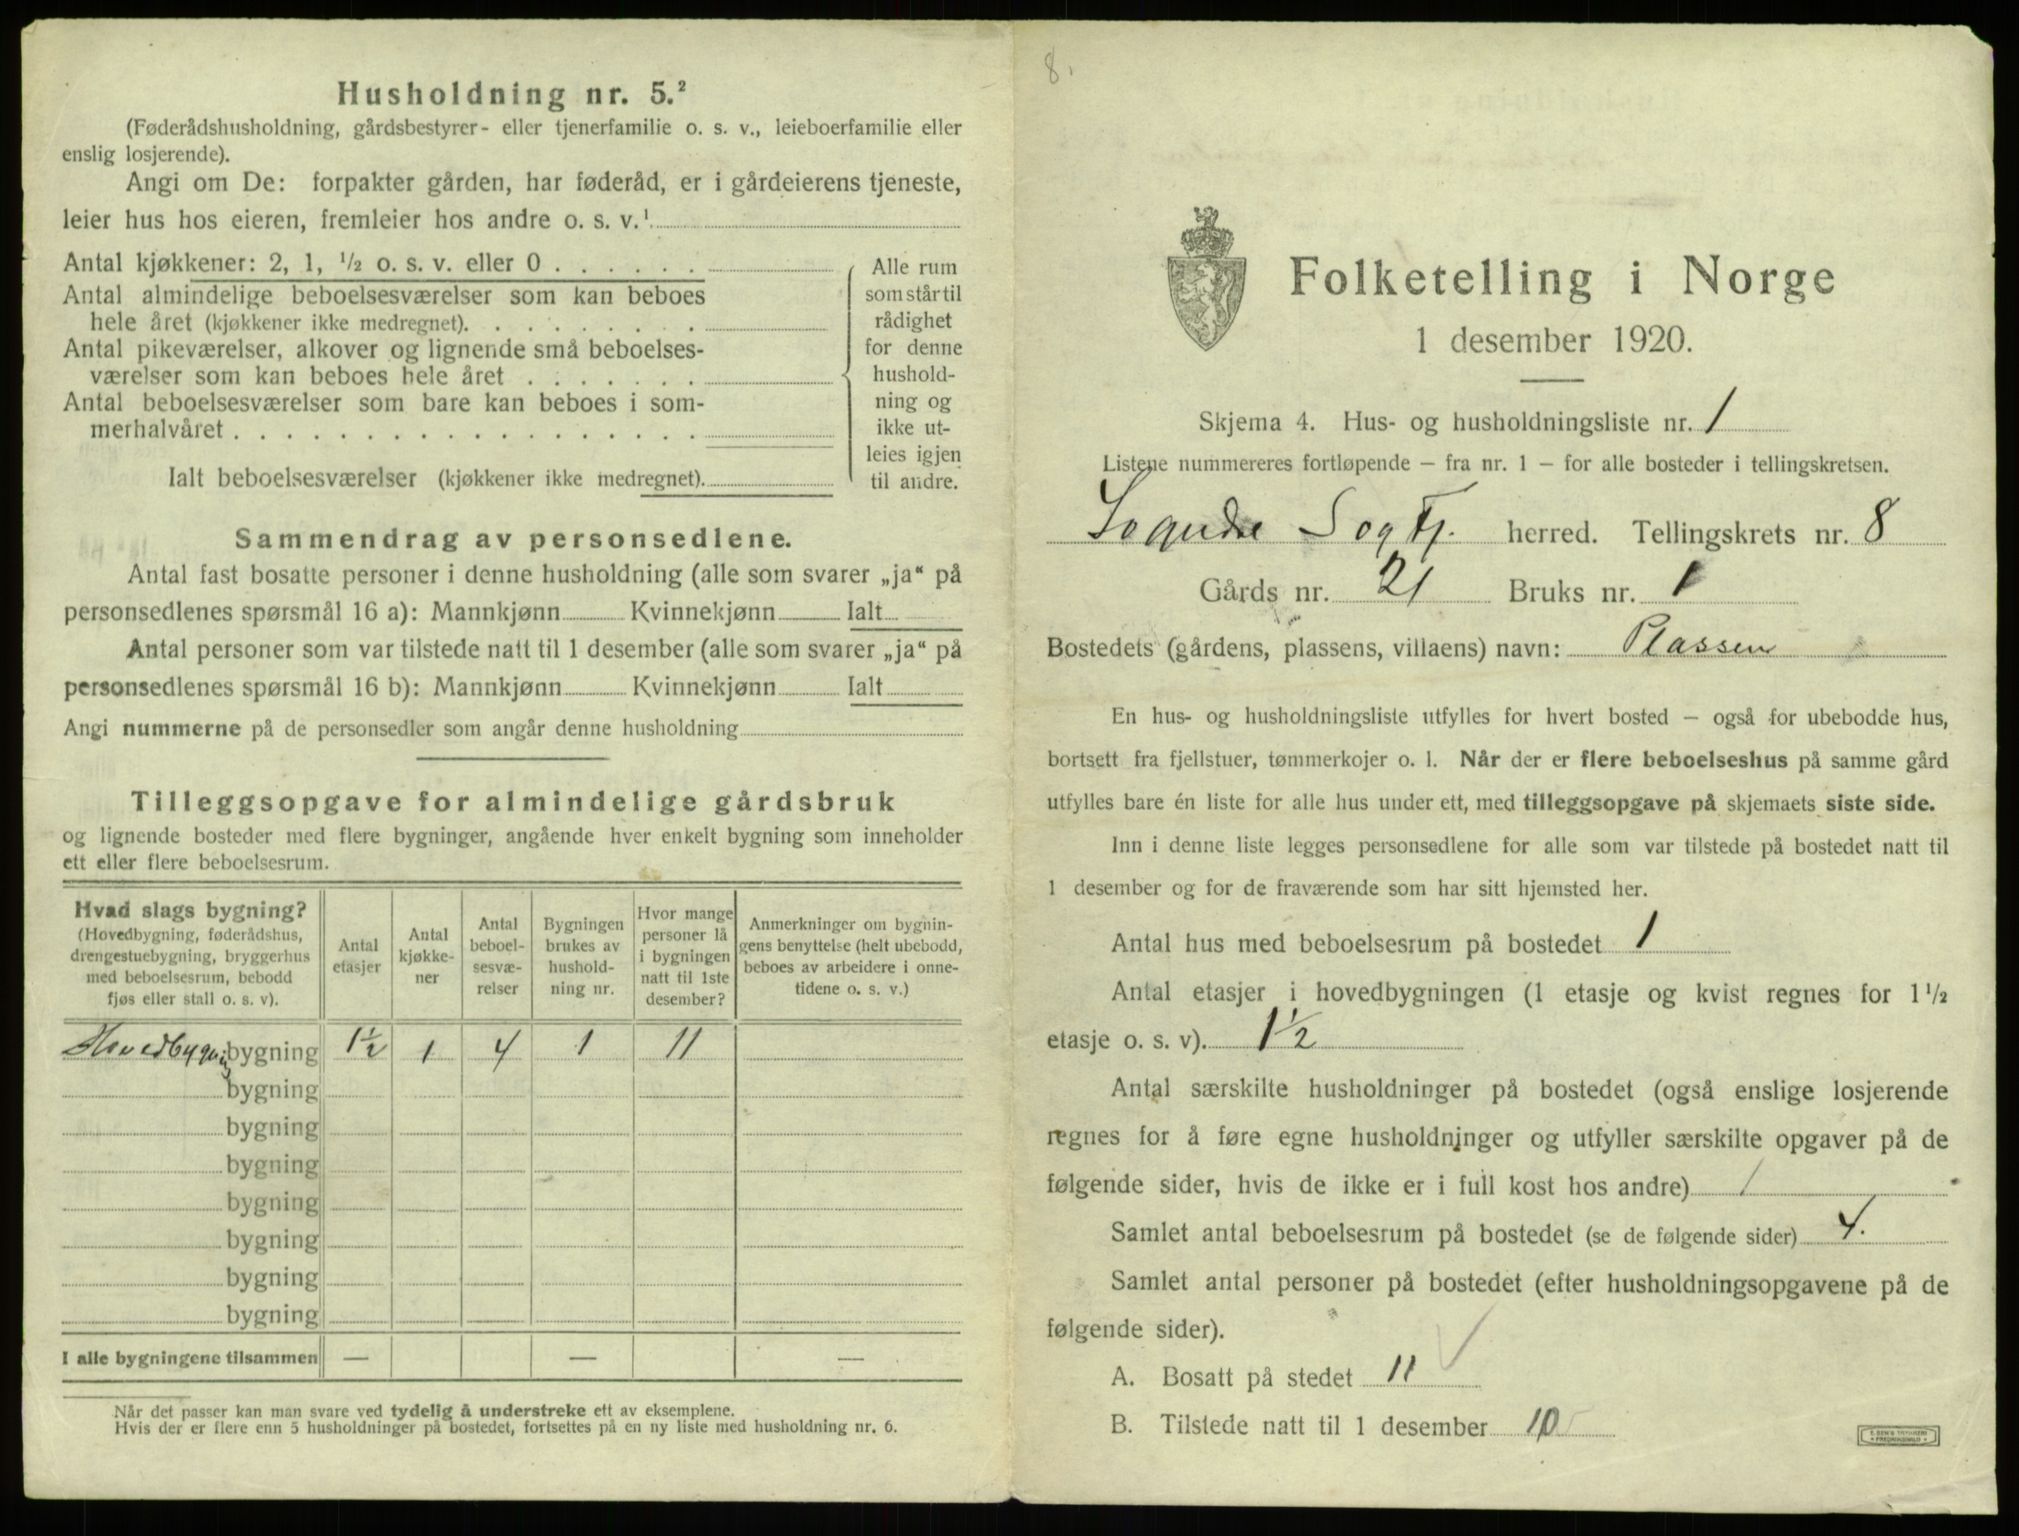 Husholdning nr. 5.²
(Føderådshusholdning, gårdsbestyrer- eller tjenerfamilie o. s. v., leieboerfamilie eller
enslig losjerende).
Angi om De: forpakter gården, har føderåd, er i gårdeierens tjeneste,
leier hus hos eieren, fremleier hos andre o. s. v.¹
Antal kjøkkener: 2, 1, ½ o. s. v. eller 0
Antal almindelige beboelsesværelser som kan beboes
hele året (kjøkkener ikke medregnet).
Antal pikeværelser, alkover og lignende små beboelses-
værelser som kan beboes hele året
Antal beboelsesværelser som bare kan beboes i som-
merhalvåret
Ialt beboelsesværelser (kjøkkener ikke medregnet).
Alle rum
som står til
rådighet
for denne
hushold-
ning og
ikke ut-
leies igjen
til andre.
Sammendrag av personsedlene.
Antal fast bosatte personer i denne husholdning (alle som svarer „ja“ på
personsedlenes spørsmål 16 a): Mannkjønn Kvinnekjønn Ialt
Antal personer som var tilstede natt til 1 desember (alle som svarer „ja“ på
personsedlenes spørsmål 16 b): Mannkjønn Kvinnekjønn Ialt
Angi nummerne på de personsedler som angår denne husholdning
Tilleggsopgave for almindelige gårdsbruk
og lignende bosteder med flere bygninger, angående hver enkelt bygning som inneholder
ett eller flere beboelsesrum.
Hvad slags bygning?
(Hovedbygning, føderådshus,
drengestuebygning, bryggerhus
med beboelsesrum, bebodd
fjøs eller stall o. s. v).
Antal
etasjer
Antal
kjøkke-
ner
Antal
beboel-
sesvæ-
relser
Bygningen
brukes av
hushold-
ning nr.
Hvor mange
personer lå
i bygningen
natt til 1ste
desember?
Anmerkninger om bygnin-
gens benyttelse (helt ubebodd,
beboes av arbeidere i onne-
tidene o. s. v.)
Hovedbygning bygning 1½ 1 4 1 11
bygning
bygning
bygning
bygning
bygning
bygning
bygning
I alle bygningene tilsammen — — —
Når det passer kan man svare ved tydelig å understreke ett av eksemplene.
Hvis der er flere enn 5 husholdninger på bostedet, fortsettes på en ny liste med husholdning nr. 6.
8.
Folketelling i Norge
1 desember 1920.
Skjema 4. Hus- og husholdningsliste nr. 1
Listene nummereres fortløpende – fra nr. 1 – for alle bosteder i tellingskretsen.
Sogndal Sogn Fj. herred. Tellingskrets nr. 8
Gårds nr. 21 Bruks nr. 1
Bostedets (gårdens, plassens, villaens) navn: Plassen
En hus- og husholdningsliste utfylles for hvert bosted – også for ubebodde hus,
bortsett fra fjellstuer, tømmerkojer o. l. Når der er flere beboelseshus på samme gård
utfylles bare én liste for alle hus under ett, med tilleggsopgave på skjemaets siste side.
Inn i denne liste legges personsedlene for alle som var tilstede på bostedet natt til
1 desember og for de fraværende som har sitt hjemsted her.
Antal hus med beboelsesrum på bostedet 1
Antal etasjer i hovedbygningen (1 etasje og kvist regnes for 1½
etasje o. s. v). 1½
Antal særskilte husholdninger på bostedet (også enslige losjerende
regnes for å føre egne husholdninger og utfyller særskilte opgaver på de
følgende sider, hvis de ikke er i full kost hos andre) 1
Samlet antal beboelsesrum på bostedet (se de følgende sider) 4.
Samlet antal personer på bostedet (efter husholdningsopgavene på de
følgende sider).
A. Bosatt på stedet 11
B. Tilstede natt til 1 desember 10